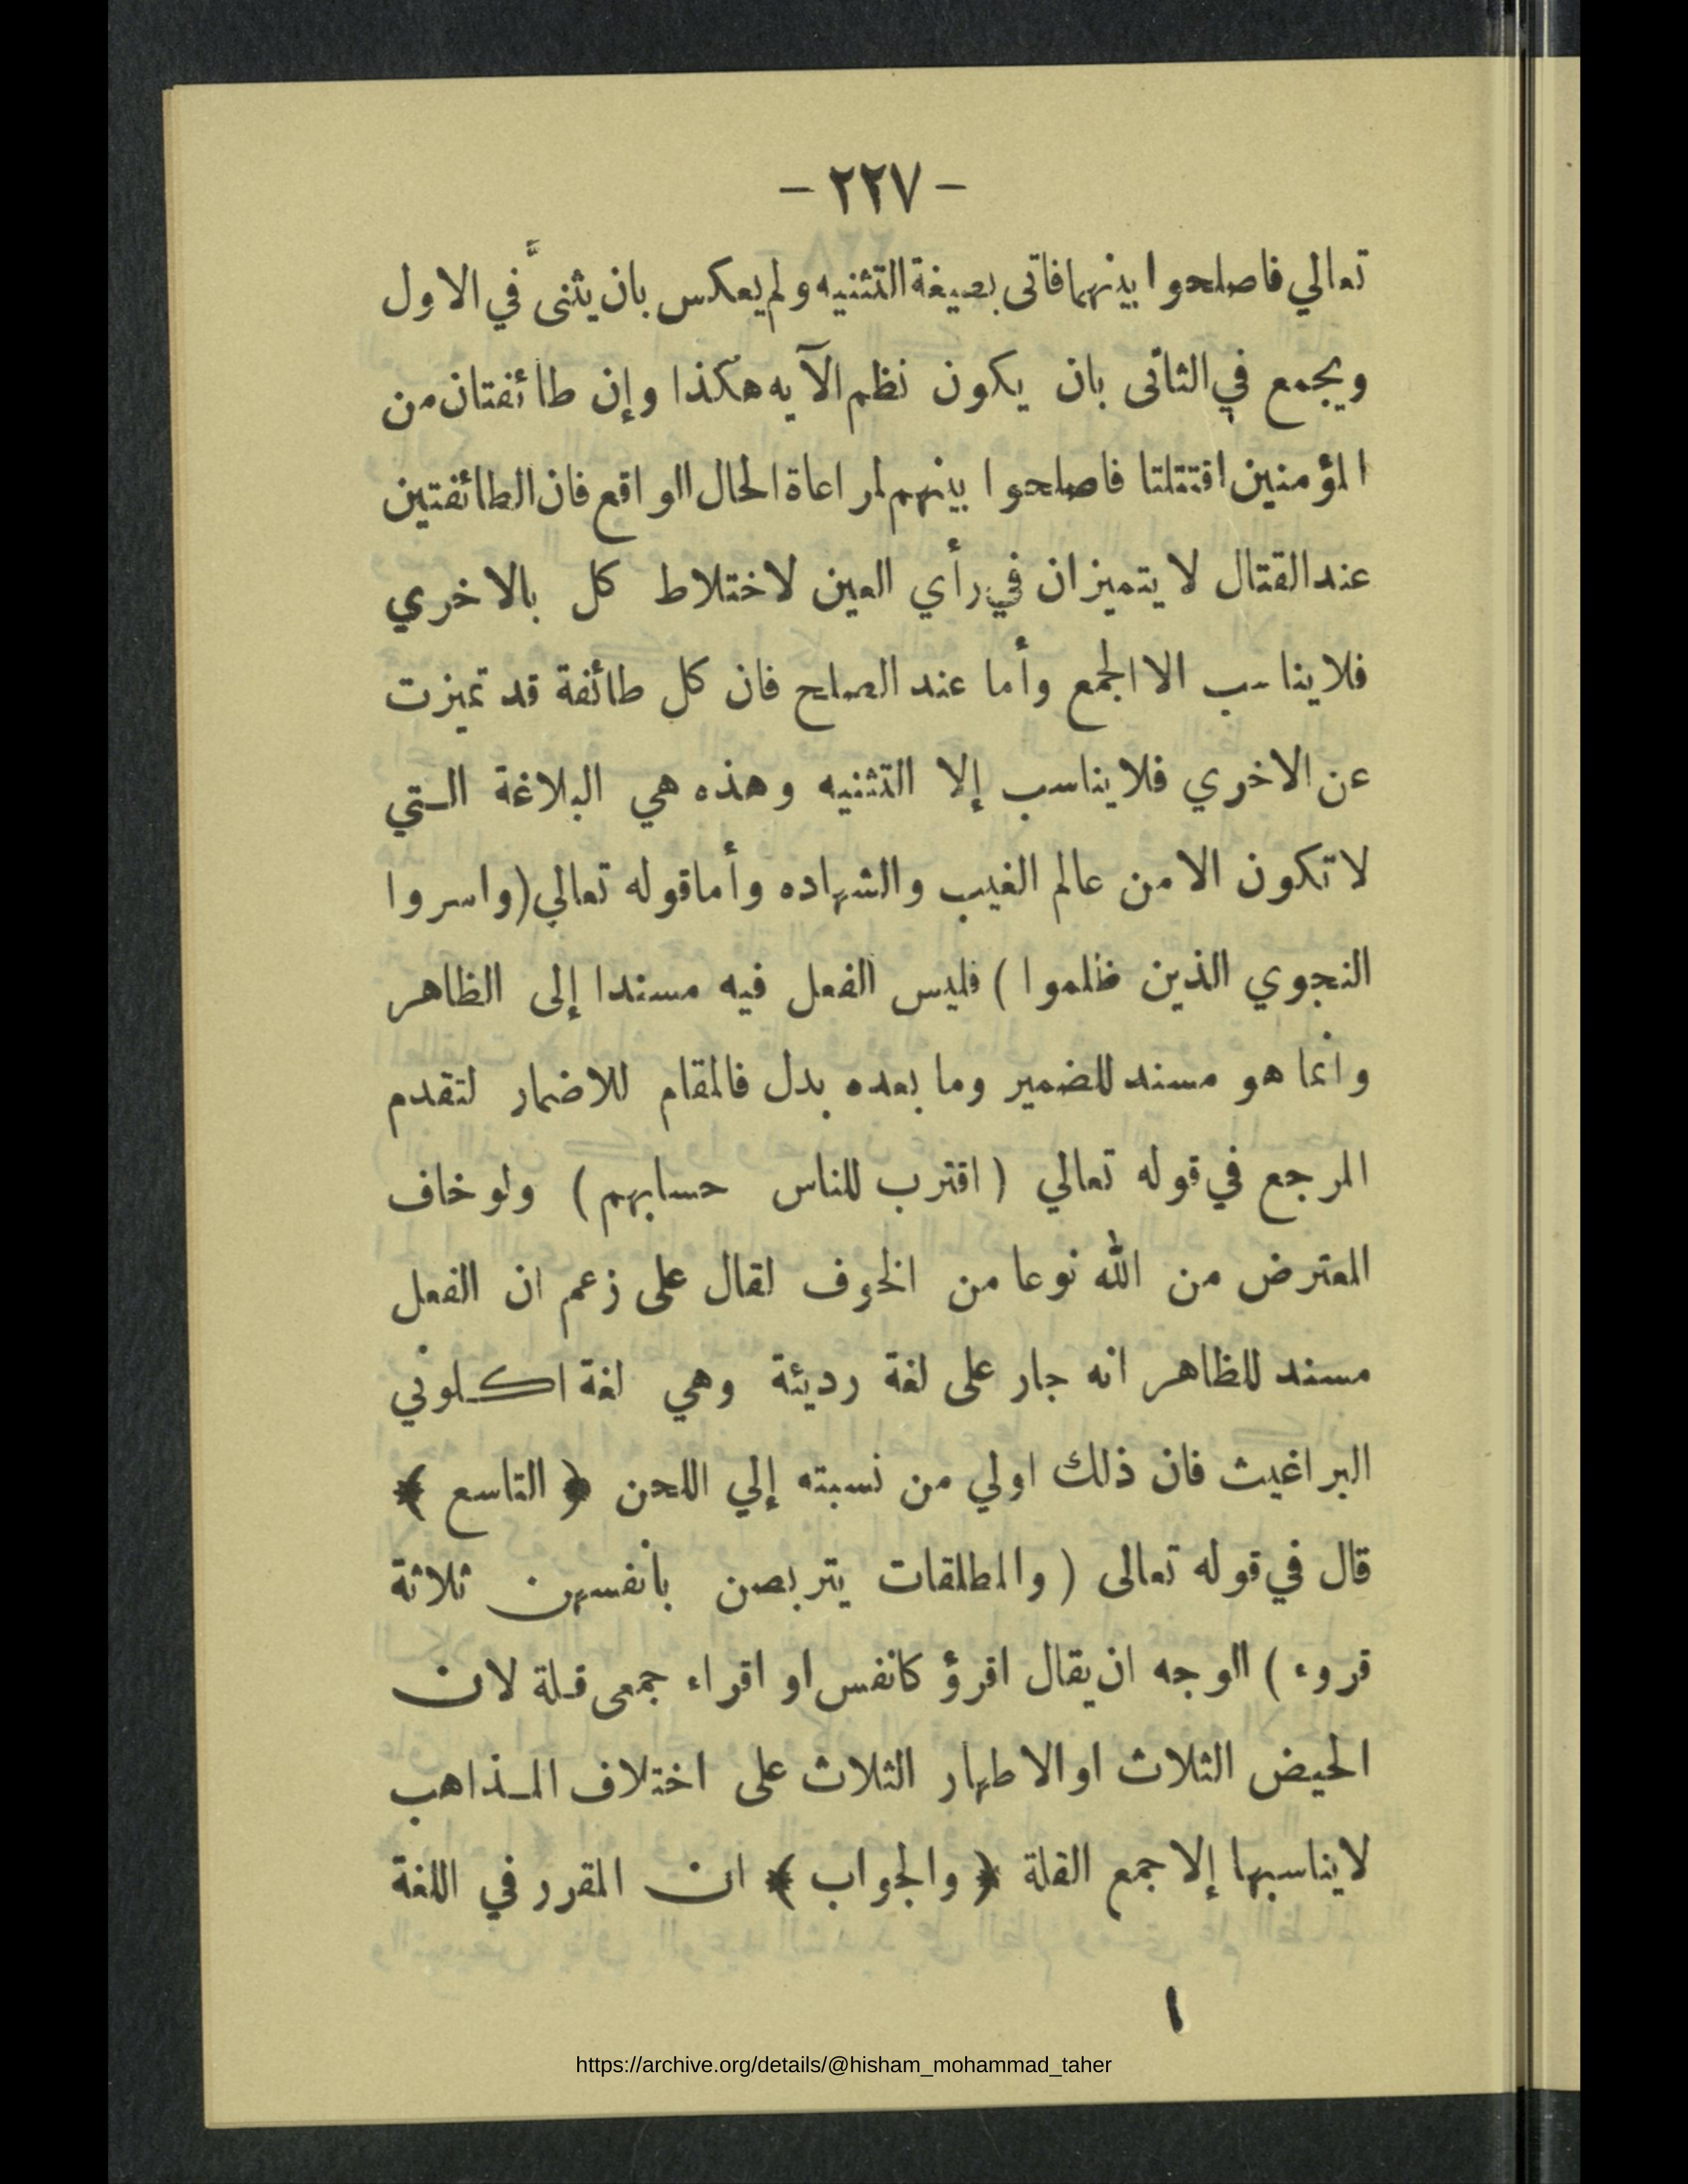 - ٢٢٧ -
تعالي فاصلحوا بينهما فاتى بصيغة التثنيه ولم يعكس بان يثنىَّ في الاول
ويجمع في الثانى بان يكون نظم الآيه هكذا وإن طائفتان من
المؤمنين اقتتلتا فاصلحوا بينهم لمراعاة الحال الواقع فان الطائفتين
عند القتال لا يتميزان في رأي العين لاختلاط كل بالاخري
فلا يناسب الا الجمع وأما عند الصلح فان كل طائفة قد تميزت
عن الاخري فلا يناسب إلا التثنيه وهذه هي البلاغة التي
لا تكون الا من عالم الغيب والشهاده وأما قوله تعالي (واسروا
النجوي الذين ظلموا) فليس الفعل فيه مسندا إلى الظاهر
وانما هو مسند للضمير وما بعده بدل فالمقام للاضمار لتقدم
المرجع في قوله تعالي (اقترب للناس حسابهم) ولو خاف
المعترض من الله نوعا من الخوف لقال على زعم ان الفعل
مسند للظاهر انه جار على لغة رديئة وهي لغة اكلوني
البراغيث فان ذلك اولي من نسبته إلي اللحن ﴿ التاسع ﴾
قال في قوله تعالى (والمطلقات يتربصن بأنفسهن ثلاثة
قروء) الوجه ان يقال اقرؤ كانفس او اقراء جمعى قلة لان
الحيض الثلاث او الاطهار الثلاث على اختلاف المذاهب
لا يناسبها إلا جمع القلة ﴿ والجواب ﴾ ان المقرر في اللغة
https://archive.org/details/@hisham_mohammad_taher